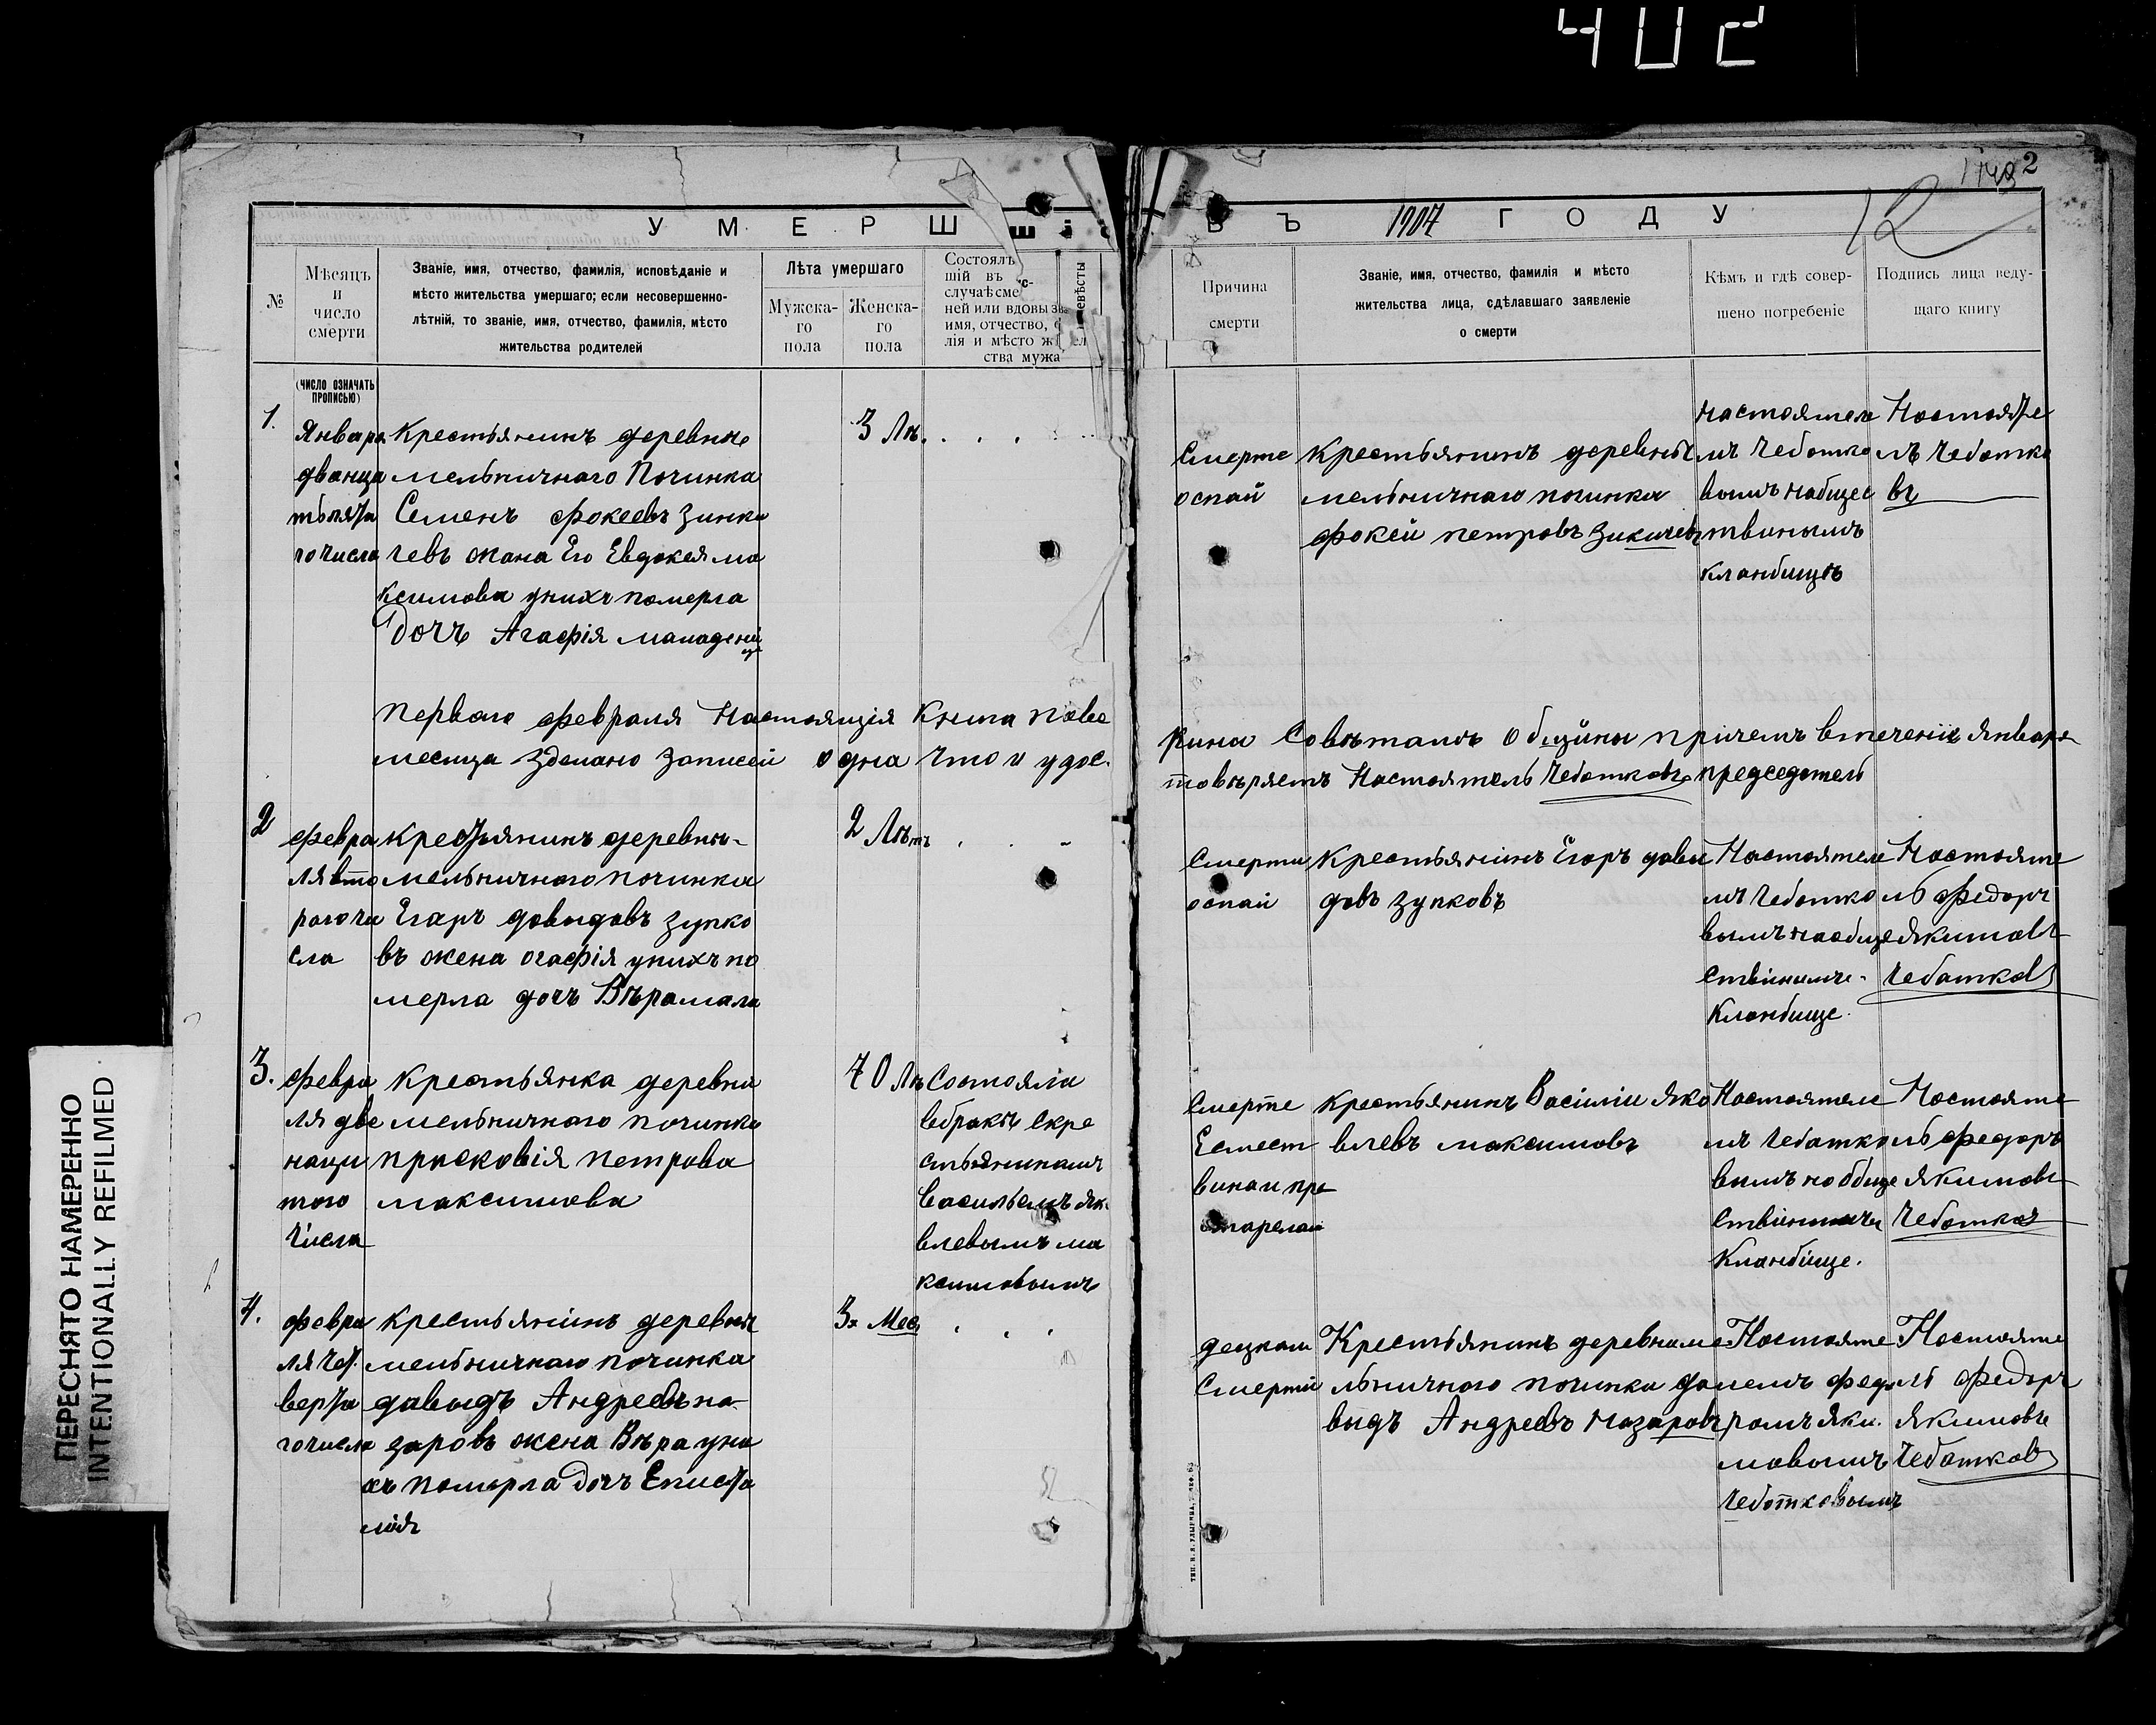 402
2
12
УМЕРШ
ВЪ 1907 ГОДУ
№
Мѣсяцъ
и
число
смерти
Званіе, имя, отчество, фамилія, исповѣданіе и
мѣсто жительства умершаго; если несовершенно-
лѣтній, то званіе, имя, отчество, фамилія, мѣсто
жительства родителей
Лѣта умершаго
Мужска-
го
пола
Женска-
го
пола
Состоялъ
шій въ
случаѣ сме
ней или вдовы зва
имя, отчество,
лія и мѣсто ж
ства мужа
Причина
смерти
Званіе, имя, отчество, фамилія и мѣсто
жительства лица, сдѣлавшаго заявленіе
о смерти
Кѣмъ и гдѣ совер-
шено погребеніе
Подпись лица веду-
щаго книгу
(ЧИСЛО ОЗНАЧАТЬ
ПРОПИСЬЮ)
1.
Января
дванца
тьпята
гочисла
крестьянинъ деревне
мельничнаго Починка
Семенъ фокеевъ Зинка
чевъ жана Его Евдокея ма
ксимова унихъ померла
дочъ Агафія
3 Лѣ.
Смерте
оспай
крестьянинъ деревнѣ
мельничнаго починка
фокей петровъ
настоятеле
мъ Чеботко
вымъ
твинымъ
кланбищѣ
Настояте
лъ Чеботко
въ
первого февраля Настоящія книга паве
рина Совѣтамъ Общины причемъ втеченіи Января
месица зделано записей одна Что и удос.
товѣряетъ Настоятель Чеботковъ председатель
2
февра
ля вто
рогочи
сла
крестьянинъ деревнѣ
мельничнаго починка
Егаръ давыдовъ зупко
въ жена огафія унихъ по
мерла дочъ Вѣрамала
2 Лѣтъ
Смерти
оспай
Крестьянинъ Егоръ давы
довъ зупковъ
Настоятеле
мъ Чеботко
вымъ наобще
ствинимъ
Кланбище.
Настояте
ль федоръ
Якимовъ
Чеботковъ
3.
февра
ля две
наци
того
Числа
крестьянка деревни
мельничнаго починка
прасковія петрова
максимова
70 Лѣ
Состояла
вбракѣ скре
стьяниномъ
васильемъ як.
влевымъ ма
ксимовымъ
Смерте
Естест
винаи пре
старелаи
крестьянинъ Василіи яко
влевъ максимовъ
Настоятеле
мъ Чеботко
вымъ нообще
Кланбище.
Настояте
ль федоръ
якимовъ
4.
февра
ля Чет
верта
гочисла
крестьянинъ деревнѣ
мельничнаго починка
давыдъ Андреевъ на-
заровъ жена Вѣра уни
хъ померла дочъ
3х Мес
децкаи
Смерти
Крестьянинъ деревни ме
льничнаго починка да
выдъ Андреевъ Назаровъ
Настояте
лемъ федо
ромъ Яки.
мовымъ
Чеботковымъ
Настояте
ль федоръ
Якимовъ
Чеботковъ
ПЕРЕСНЯТО НАМЕРЕННО
INTENTIONALLY REFILMED